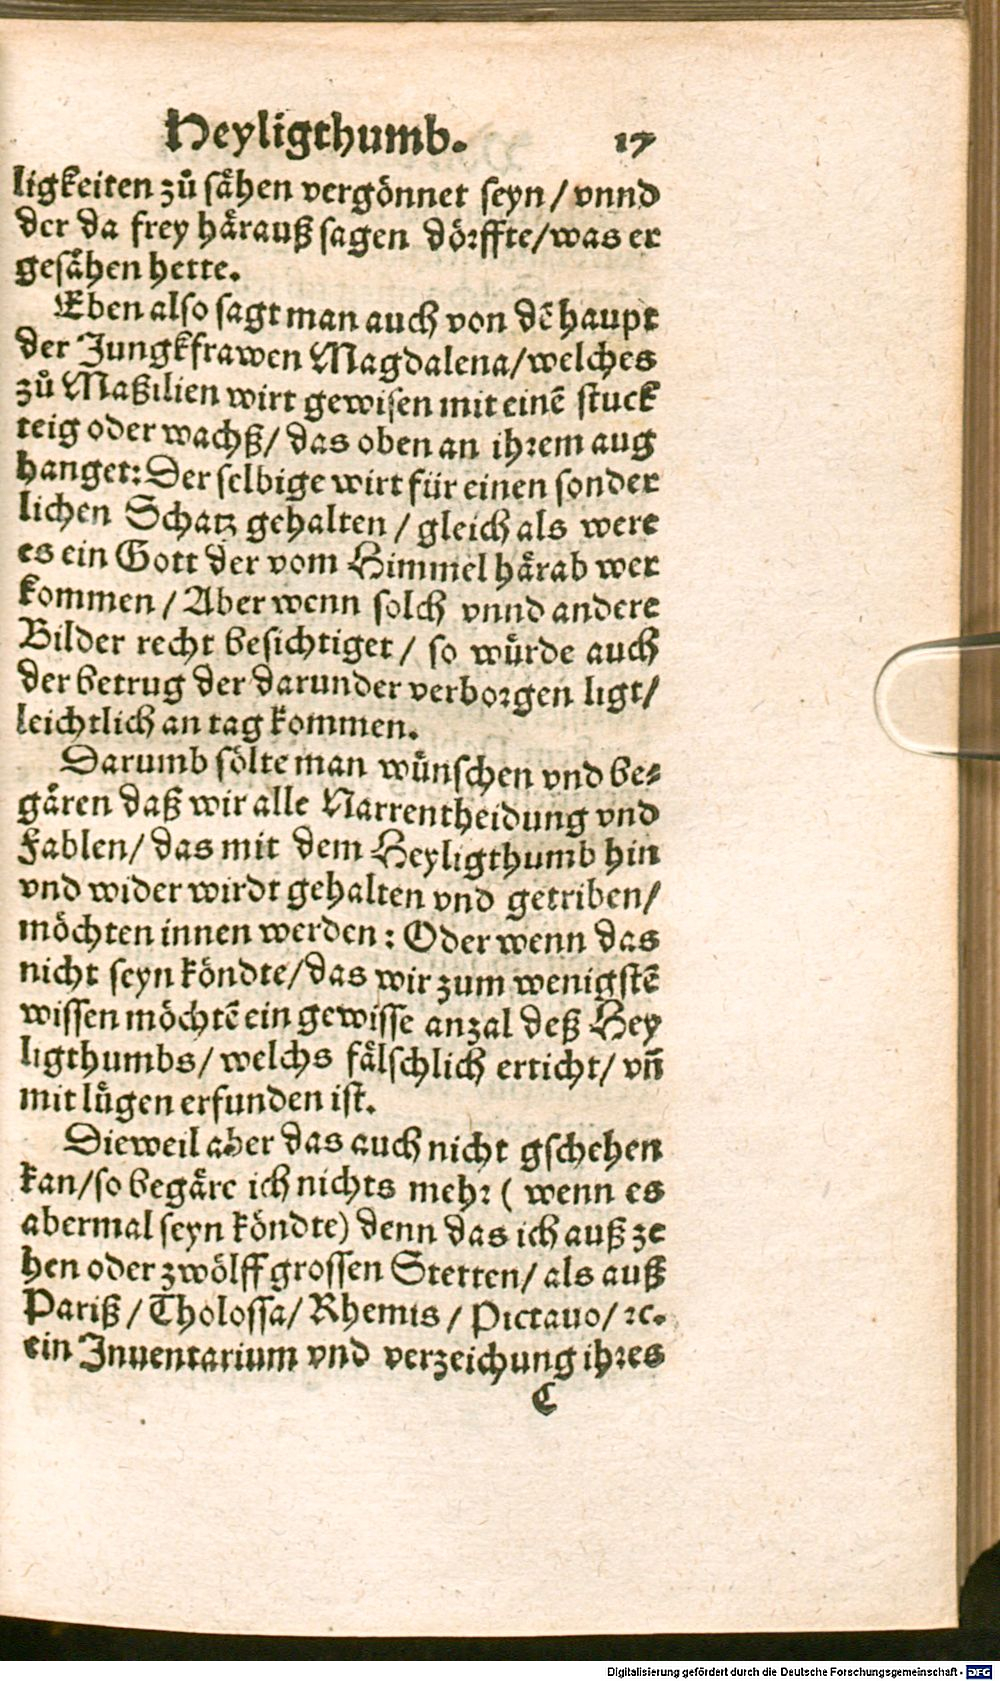 Heyligthumb. 17
ligkeiten zů sähen vergönnet seyn / vnnd
der da frey härauß sagen dörffte/was er
gesähen hette.
Eben also sagt man auch von dē haupt
der Jungkfrawen Magdalena/welches
zů Maßilien wirt gewisen mit einē stuck
teig oder wachß/ das oben an ihrem aug
hanget: Der selbige wirt für einen sonder
lichen Schatz gehalten / gleich als were
es ein Gott der vom Himmel härab wer
kommen / Aber wenn solch vnnd andere
Bilder recht besichtiget / so würde auch
der betrug der darunder verborgen ligt/
leichtlich an tag kommen.
Darumb sölte man wünschen vnd be⸗
gären daß wir alle Narrentheidung vnd
Fablen/ das mit dem Heyligthumb hin
vnd wider wirdt gehalten vnd getriben/
möchten innen werden: Oder wenn das
nicht seyn köndte/das wir zum wenigstē
wissen möchtē ein gewisse anzal deß Hey
ligthumbs/ welchs fälschlich erticht/ vn̄
mit lügen erfunden ist.
Dieweil aber das auch nicht gschehen
kan/so begäre ich nichts mehr ( wenn es
abermal seyn köndte) denn das ich auß ze
hen oder zwölff grossen Stetten/ als auß
Pariß / Tholossa/ Rhemis / Pictauo/ ꝛc.
ein Inuentarium vnd verzeichung ihres
C
Digitalisierung gefördert durch die Deutsche Forschungsgemeinschaft - DFG